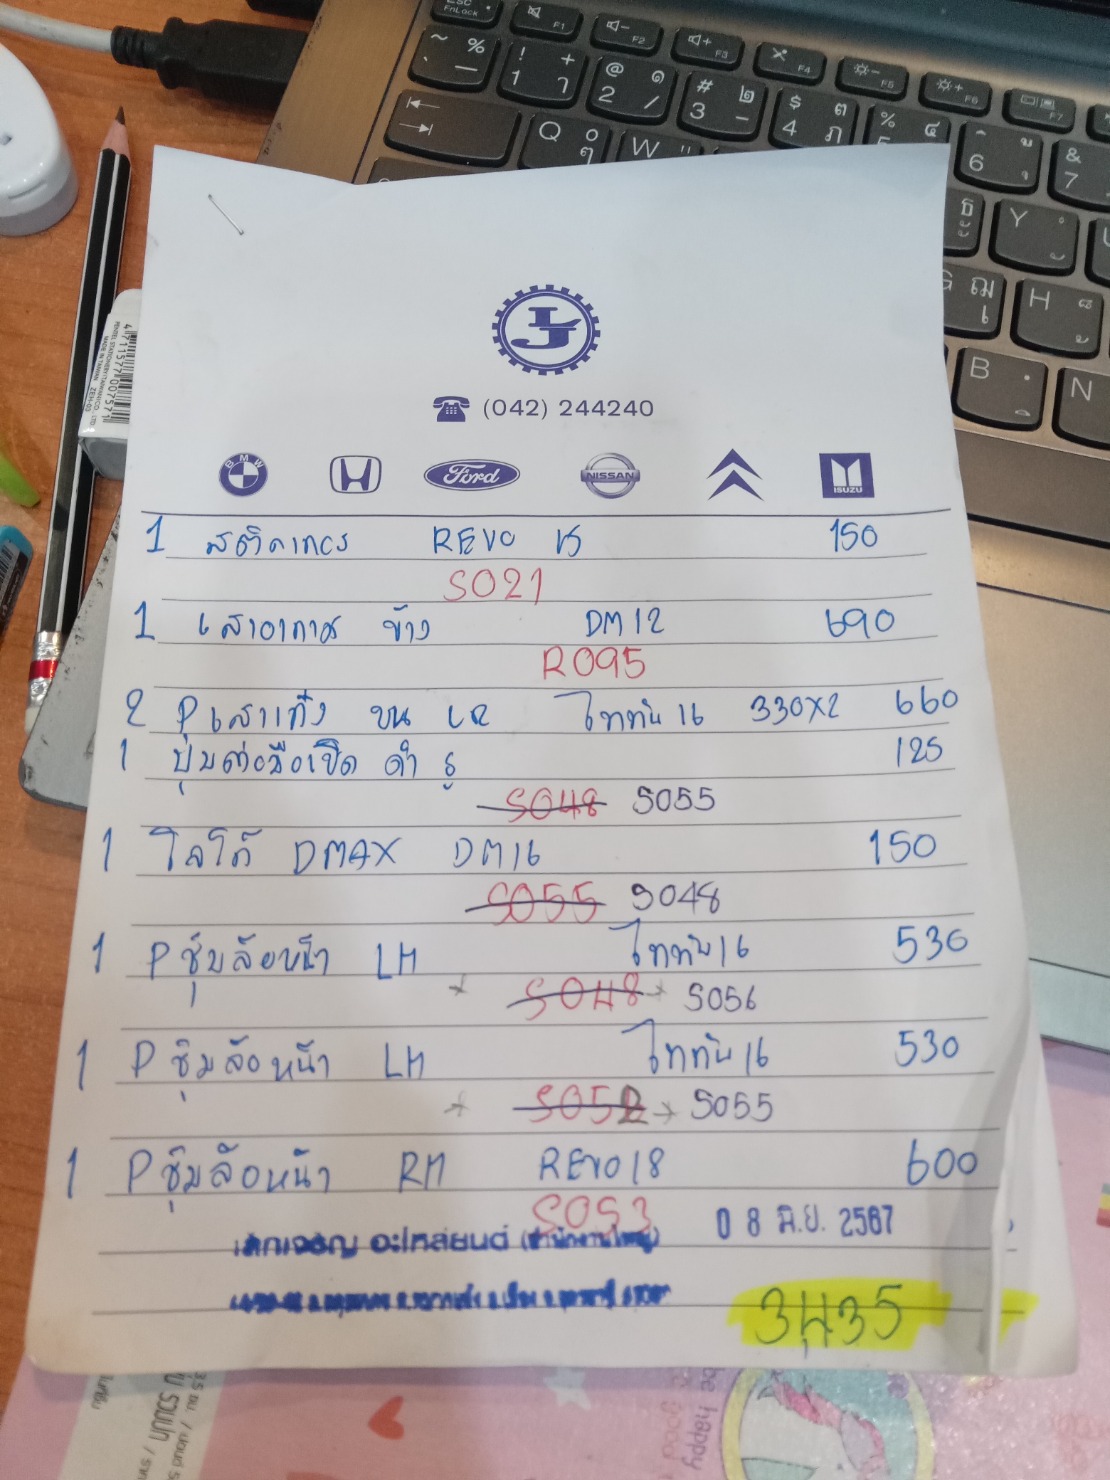 (042) 244240
BMW Ford NISSAN ISUZU
1 สติกเกอร์ REVO 15 150
S021
1 เสาอากาศ ข้าง DM12 690
R095
2 P เสาเก๋ง บน LR ไททัน16 330X2 660
1 ปุ่มต่อมือเปิด ดำ รู 125
S048 S055
1 โลโก้ DMAX DM16 150
S055 S048
1 P ซุ้มล้อหน้า LH ไททัน16 530
S048 → S056
1 P ซุ้มล้อหน้า LH ไททัน16 530
S052 → S055
1 P ซุ้มล้อหน้า RH REVO18 600
S053
0 8 มิ.ย. 2567
เอกเจริญ อะไหล่ยนต์ (สำนักงานใหญ่)
3435